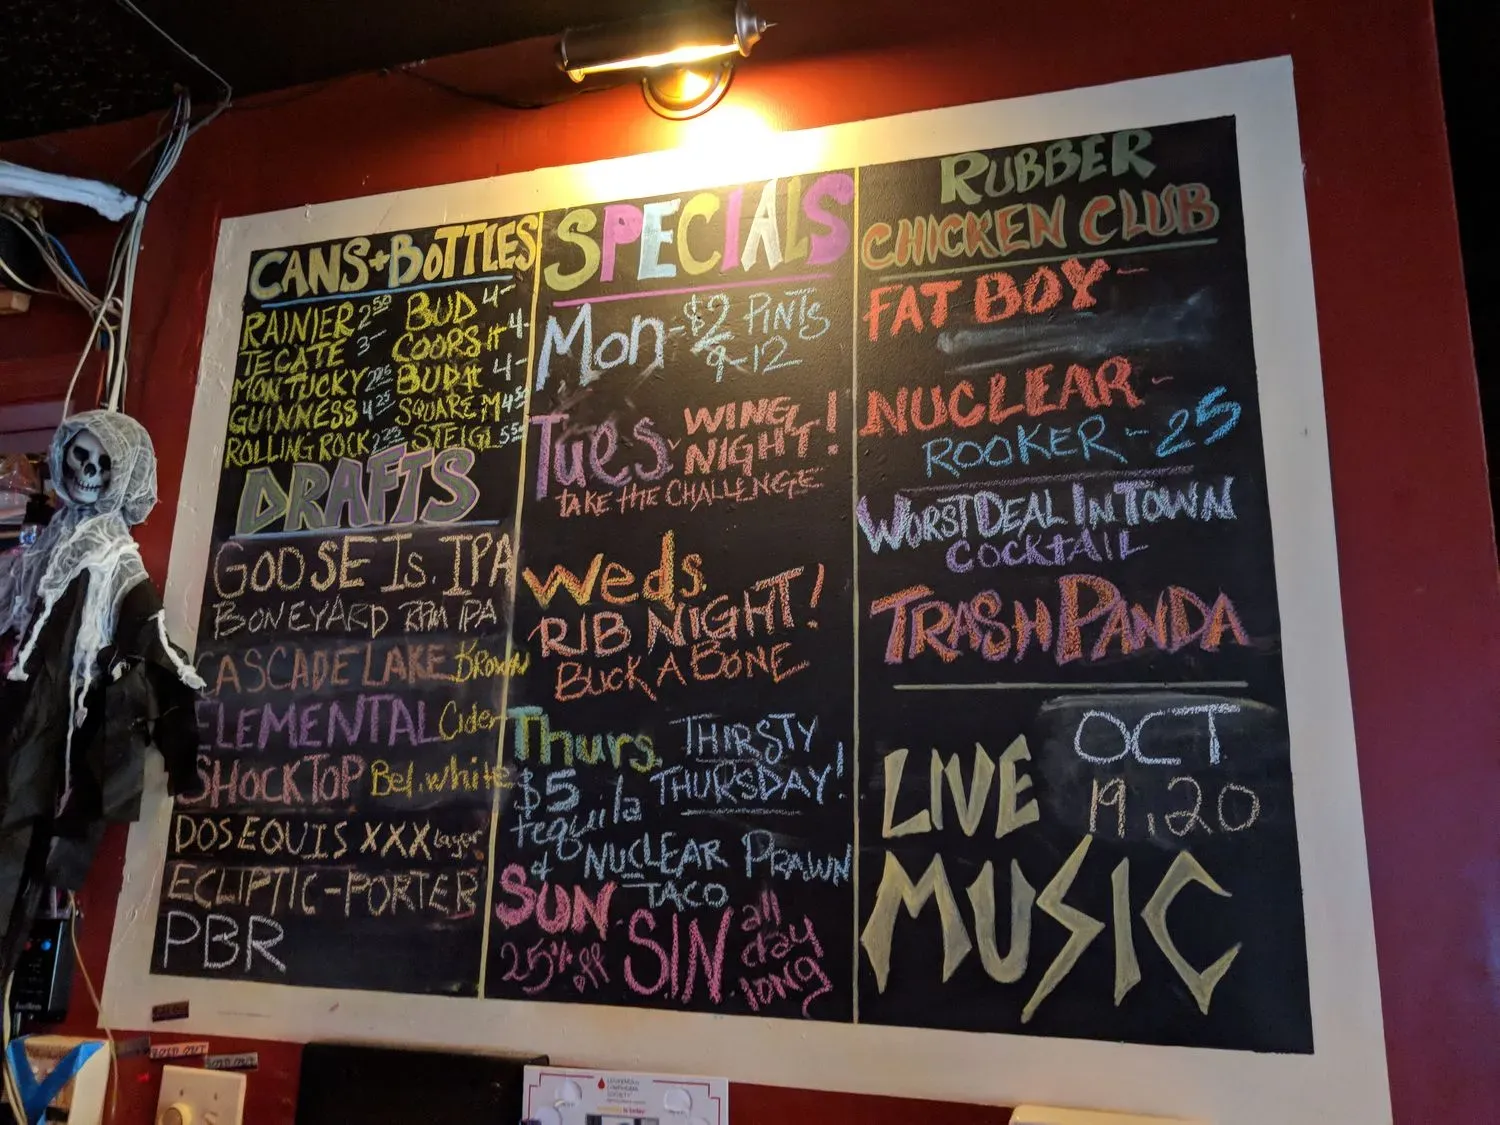 CANS + BOTTLES
RAINIER 2.50 BUD 4-
TECATE 3- COORS lt 4-
MONTUCKY 2.25 BUD lt 4-
GUINNESS 4.25 SQUARE M 4.50
ROLLING ROCK 2.25 STEIGL 5.50
DRAFTS
GOOSE IS. IPA
BONEYARD RPM IPA
CASCADE LAKE BROWN
ELEMENTAL Cider
SHOCKTOP Bel. white
DOS EQUIS XXX Lager
ECLIPTIC - PORTER
PBR
SPECIALS
Mon - $2 PINTS
9-12
Tues - WING
NIGHT!
TAKE tHE CHALLENGE
Weds.
RIB NIGHT!
BUCK A BONE
Thurs. THIRSTY
THURSDAY!
$5
tequila
& NUCLEAR PRAWN
TACO
SUN - S.I.N. all
day
long
25% off
RUBBER
CHICKEN CLUB
FAT BOY -
NUCLEAR -
ROOKER - 25
WORST DEAL IN TOWN
COCKTAIL
TRASH PANDA
LIVE
MUSIC
OCT
19, 20
SOLD OUT
SOLD OUT